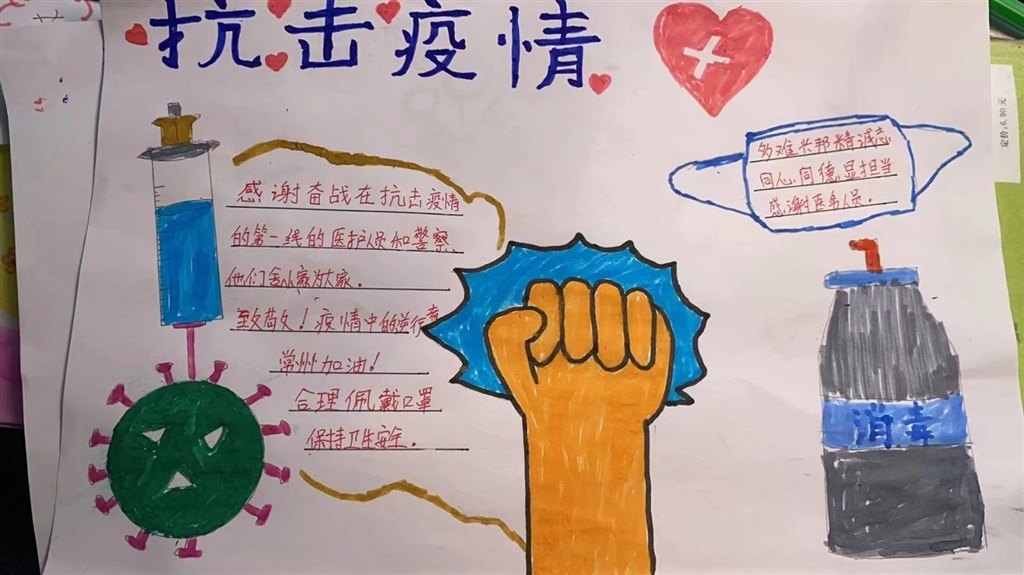 抗击疫情
感谢奋战在抗击疫情
的第一线的医护人员和警察
他们舍小家为大家.
致敬！疫情中的逆行者
常州加油！
合理佩戴口罩
保持卫生安全.
多难兴邦精诚志
同心同德显担当
感谢医务人员.
消毒
定价:6.90元